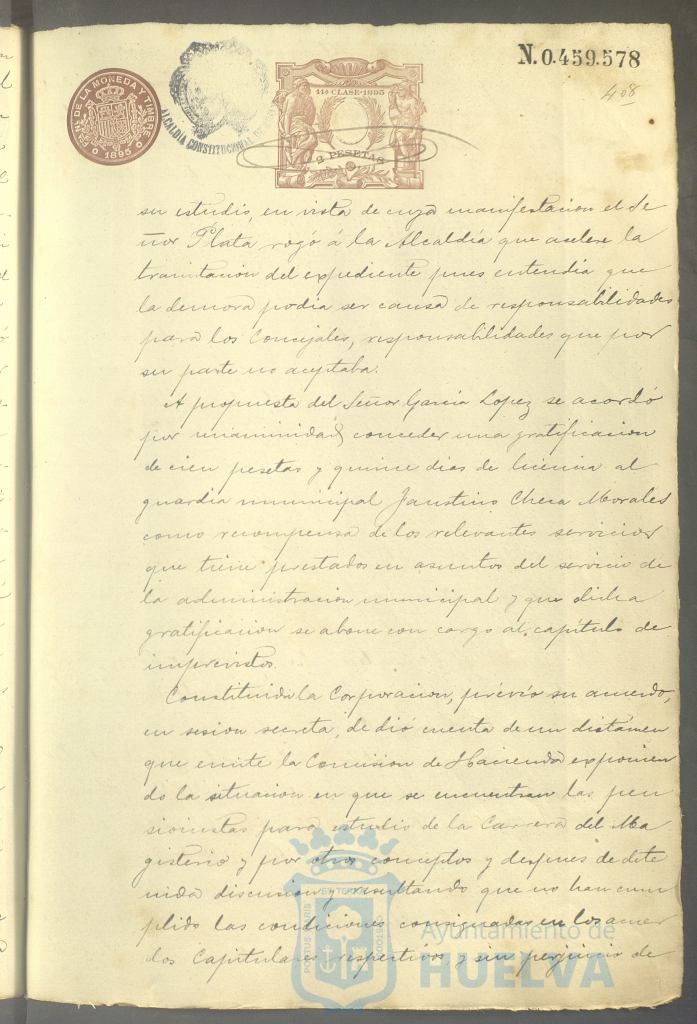 N.0.459.578
408
FÁB. NAL. DE LA MONEDA Y TIMBRE
1895
ALCALDIA CONSTITUCIONAL
11ª CLASE·1895
2 PESETAS
su estudio, en vista de cuya manifestacion el Se
ñor Plata rogó á la Alcaldía que acelere la
tramitacion del expediente pues entendia que
la demora podia ser causa de responsabilidades
para los Concejales, responsabilidades que por
su parte no aceptaba.
A propuesta del Señor Garcia Lopez se acordó
por unanimidad conceder una gratificacion
de cien pesetas y quince dias de licencia al
guardia municipal Faustino Checa Morales
como recompensa de los relevantes servicios
que tiene prestados en asuntos del servicio de
la administracion municipal y que dicha
gratificacion se abone con cargo al capítulo de
imprevistos.
Constituida la Corporacion, prévio su acuerdo,
en sesion secreta, se dió cuenta de un dictámen
que emite la Comision de Hacienda exponien
do la situacion en que se encuentran las pen
sionistas para estudio de la Carrera del Ma
gisterio y por otros conceptos y despues de dete
nida discusion y resultando que no han cum
plido las condiciones consignadas en los acuer
dos Capitulares respectivos y sin perjuicio de
PORTUS MARIS ET TERRAE CUSTODIA
Ayuntamiento de
HUELVA